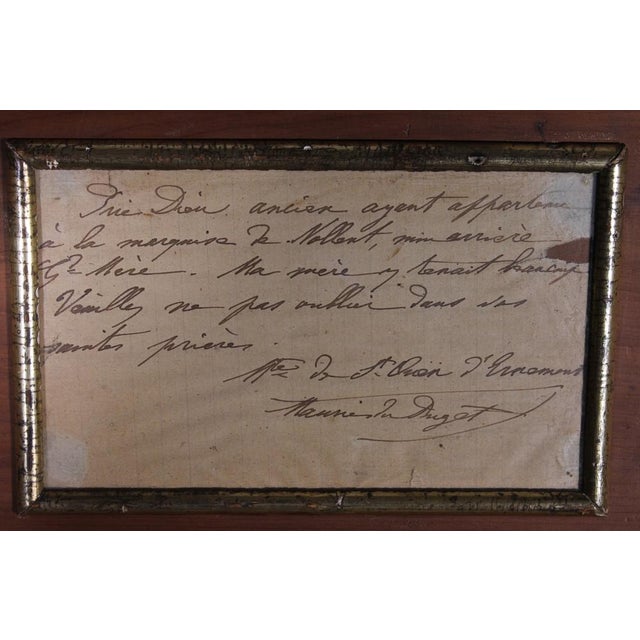 Prie Dieu ancien ayant appartenu
à la marquise de Nollent, mon arrière
Gde Mère. Ma mère y tenait beaucoup
Veuillez ne pas oublier dans vos
saintes prières.
Mise de St Ouën d'Ernemont